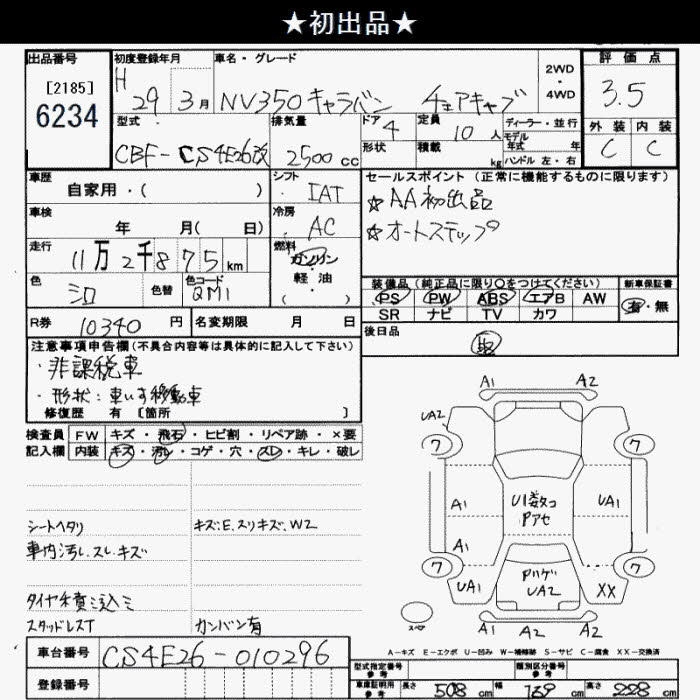 ★初出品★
出品番号
[2185]
6234
初度登録年月
H 29 3月
車名・グレード
NV350キャラバン チェアキャブ
2WD・4WD
評価点
3.5
型式
CBF-CS4E26改
排気量
2500cc
ドア
4
形状
定員
10人
積載
kg
ディーラー・並行
モデル年式 年
ハンドル 左・右
外装 内装
C C
車歴
自家用・( )
シフト
IAT
セールスポイント(正常に機能するものに限ります)
☆AA初出品
☆オートステップ
車検
年 月( 日)
冷房
AC
走行
11万2千875km
燃料
ガソリン・軽油・( )
色
シロ
色替
色コード
QM1
装備品(純正品に限り○をつけてください)
PS PW ABS エアB AW
SR ナビ TV カワ
新車保証書
有・無
R券 10340円
名変期限 月 日
後日品
取
注意事項申告欄(不具合内容等は具体的に記入して下さい)
・非課税車
・形状:車いす移動車
修復歴 有 [箇所 ]
検査員記入欄
FW キズ・飛石・ヒビ割・リペア跡・×要
内装 キズ・汚レ・コゲ・穴・スレ・キレ・破レ
シートヘタリ
キズ:E.スリキズ.W2
車内汚し.スレ.キズ
タイヤ積込ミ
スタッドレスT
カンバン有
A1 A2
UA2
ワ ワ
A1
U1数コ
Pアセ
UA1
A1
ワ ワ
UA1
Pハゲ
UA2
XX
スペア
A1 A2
A-キズ E-エクボ U-凹み W-補修跡 S-サビ C-腐食 XX-交換済
車台番号
CS4E26-010296
登録番号
型式指定番号 参考
類別区分番号 参考
車庫証明用 参考 長さ 508cm 幅 169cm 高さ 228cm